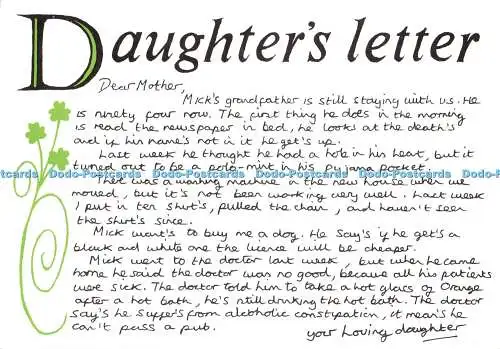 Daughter's letter
Dear Mother,
Mick's grandfather is still staying with us. He
is ninety four now. The first thing he does in the morning
is read the newspaper in bed, he looks at the death's
and if his name's not in it he get's up.
Last week he thought he had a hole in his heart, but it
turned out to be a polo-mint in his pyjama pocket.
Dodo-Postcards Dodo-Postcards Dodo-Postcards Dodo-Postcards Dodo-Postcards
There was a washing machine in the new house when we
moved, but it's not been working very well. Last week
I put in ten shirt's, pulled the chain, and haven't seen
the shirt's since.
Mick want's to buy me a dog. He say's if he get's a
black and white one the licence will be cheaper.
Mick went to the doctor last week, but when he came
home he said the doctor was no good, because all his patients
were sick. The doctor told him to take a hot glass of Orange
after a hot bath, he's still drinking the hot bath. The doctor
say's he suffer's from alcoholic constipation, it mean's he
can't pass a pub.
your Loving daughter